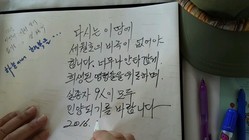 다시는 이 땅에
세월호의 비극이 없어야
합니다. 너무나 안타깝게
희생된 영령들을 애도하며,
실종자 9人이 모두
인양되기를 바랍니다
2016.